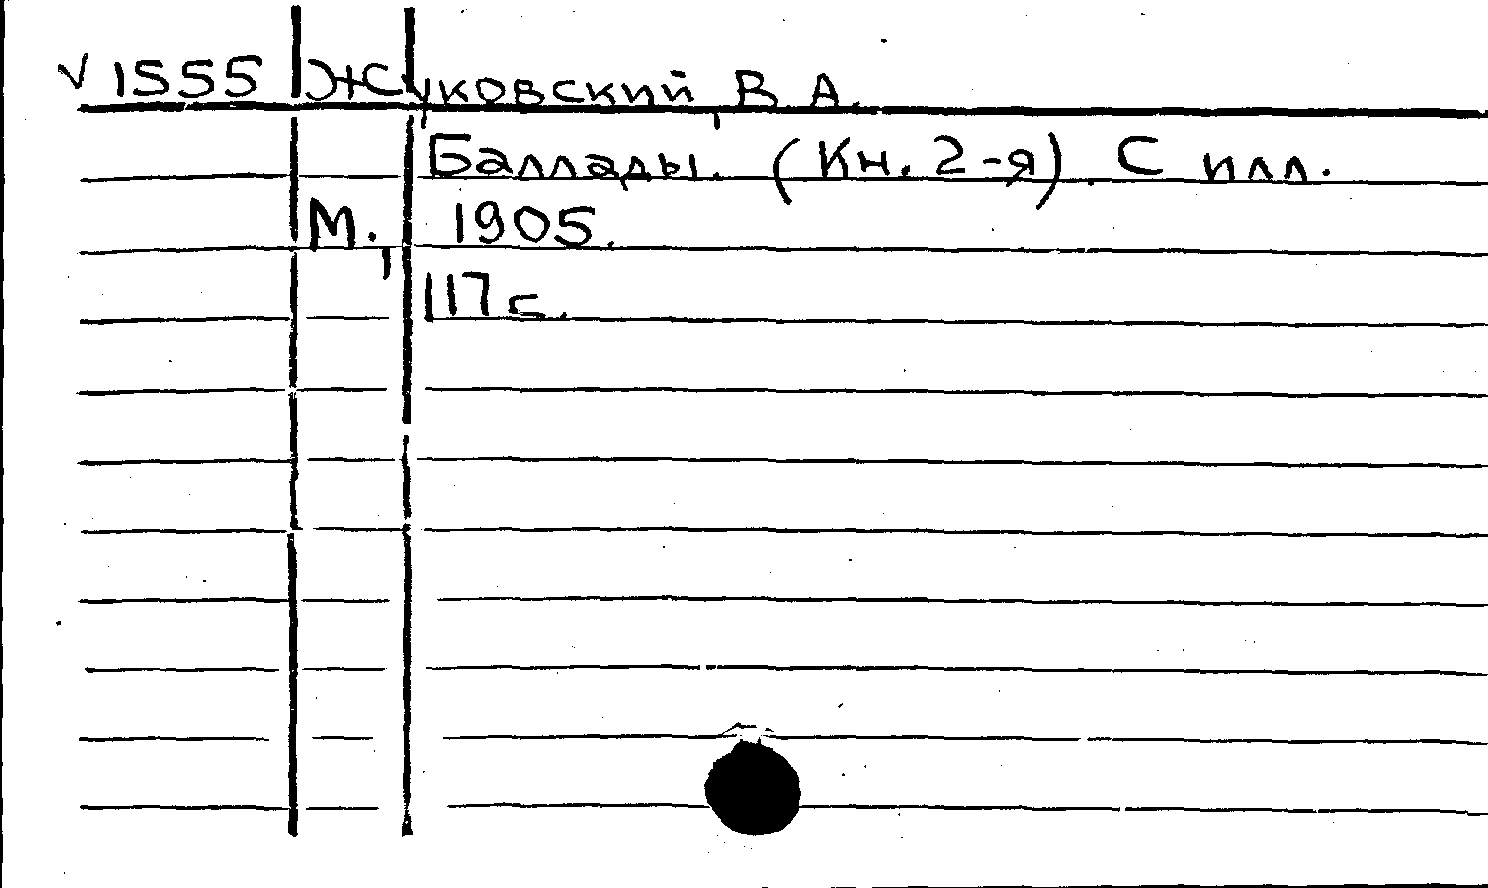 √ 1555 Жуковский, В. А.
Баллады. (Кн. 2-я). С илл.
М., 1905.
117 с.